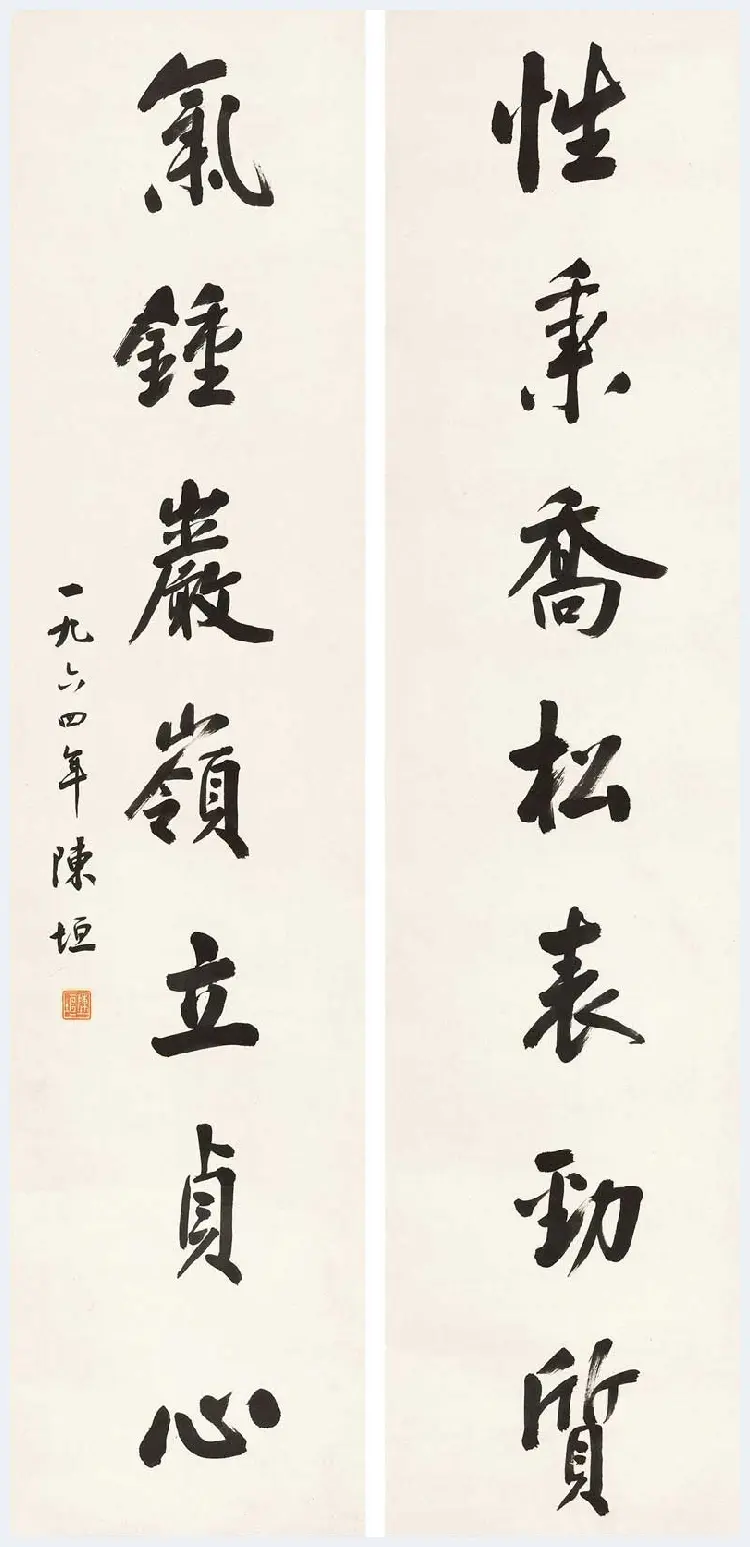 性秉喬松表勁質
氣鍾巖嶺立貞心
一九六四年陳垣